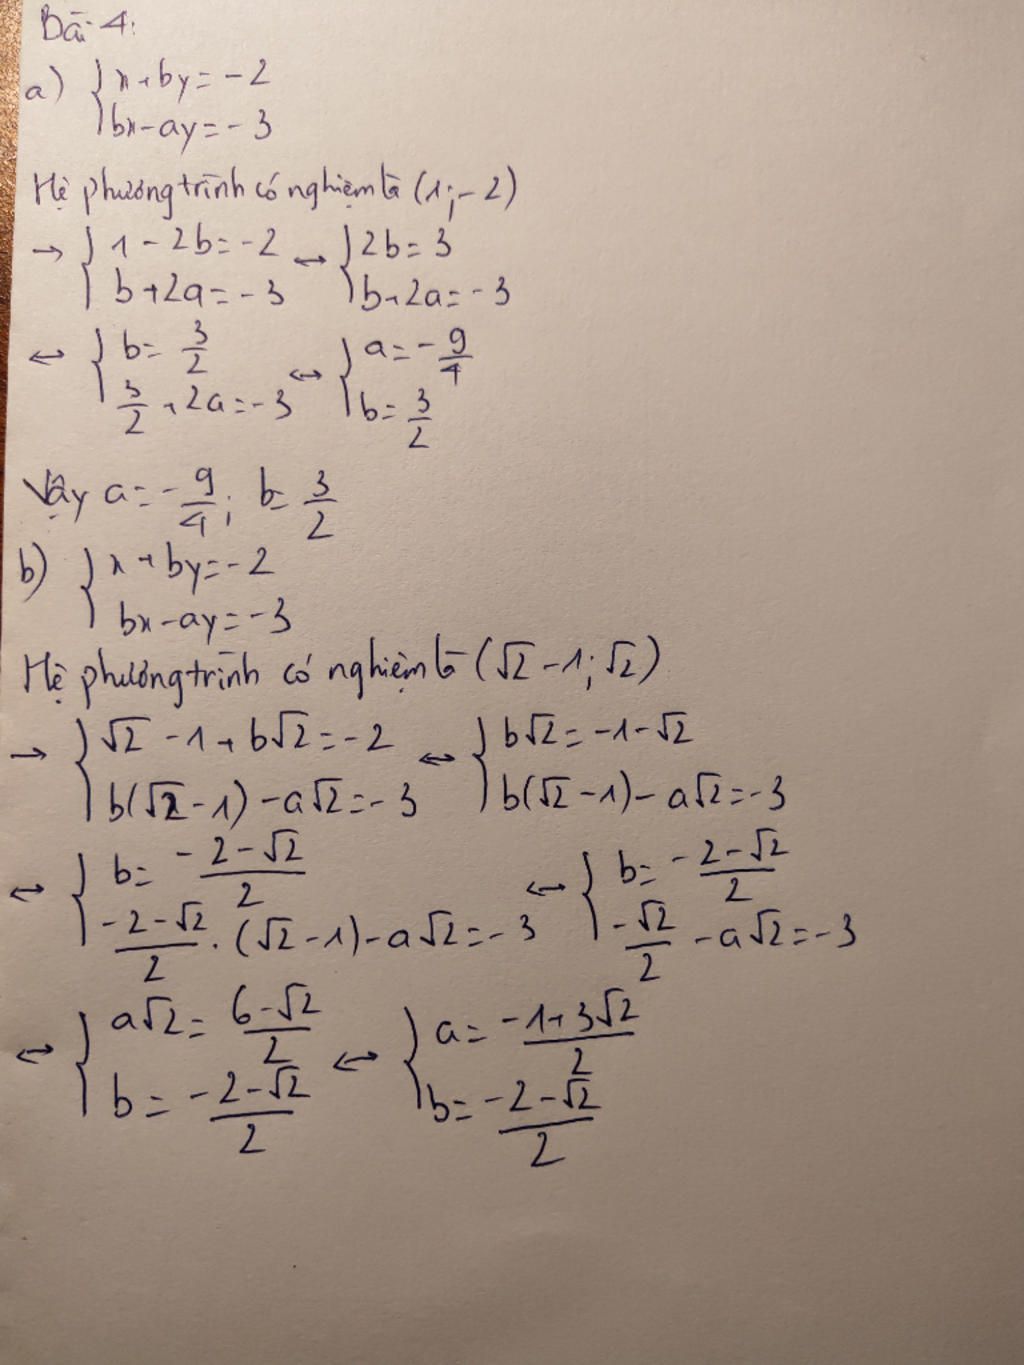 Bài 4:
a) { x + by = -2
bx - ay = -3
Hệ phương trình có nghiệm là (1; -2)
→ { 1 - 2b = -2 ↔ { 2b = 3
b + 2a = -3 b + 2a = -3
↔ { b = 3/2 ↔ { a = -9/4
3/2 + 2a = -3 b = 3/2
Vậy a = -9/4; b = 3/2
b) { x + by = -2
bx - ay = -3
Hệ phương trình có nghiệm là (√2 - 1; √2)
→ { √2 - 1 + b√2 = -2 ↔ { b√2 = -1 - √2
b(√2 - 1) - a√2 = -3 b(√2 - 1) - a√2 = -3
↔ { b = (-2 - √2)/2 ↔ { b = (-2 - √2)/2
(-2 - √2)/2 . (√2 - 1) - a√2 = -3 -√2/2 - a√2 = -3
↔ { a√2 = (6 - √2)/2 ↔ { a = (-1 + 3√2)/2
b = (-2 - √2)/2 b = (-2 - √2)/2